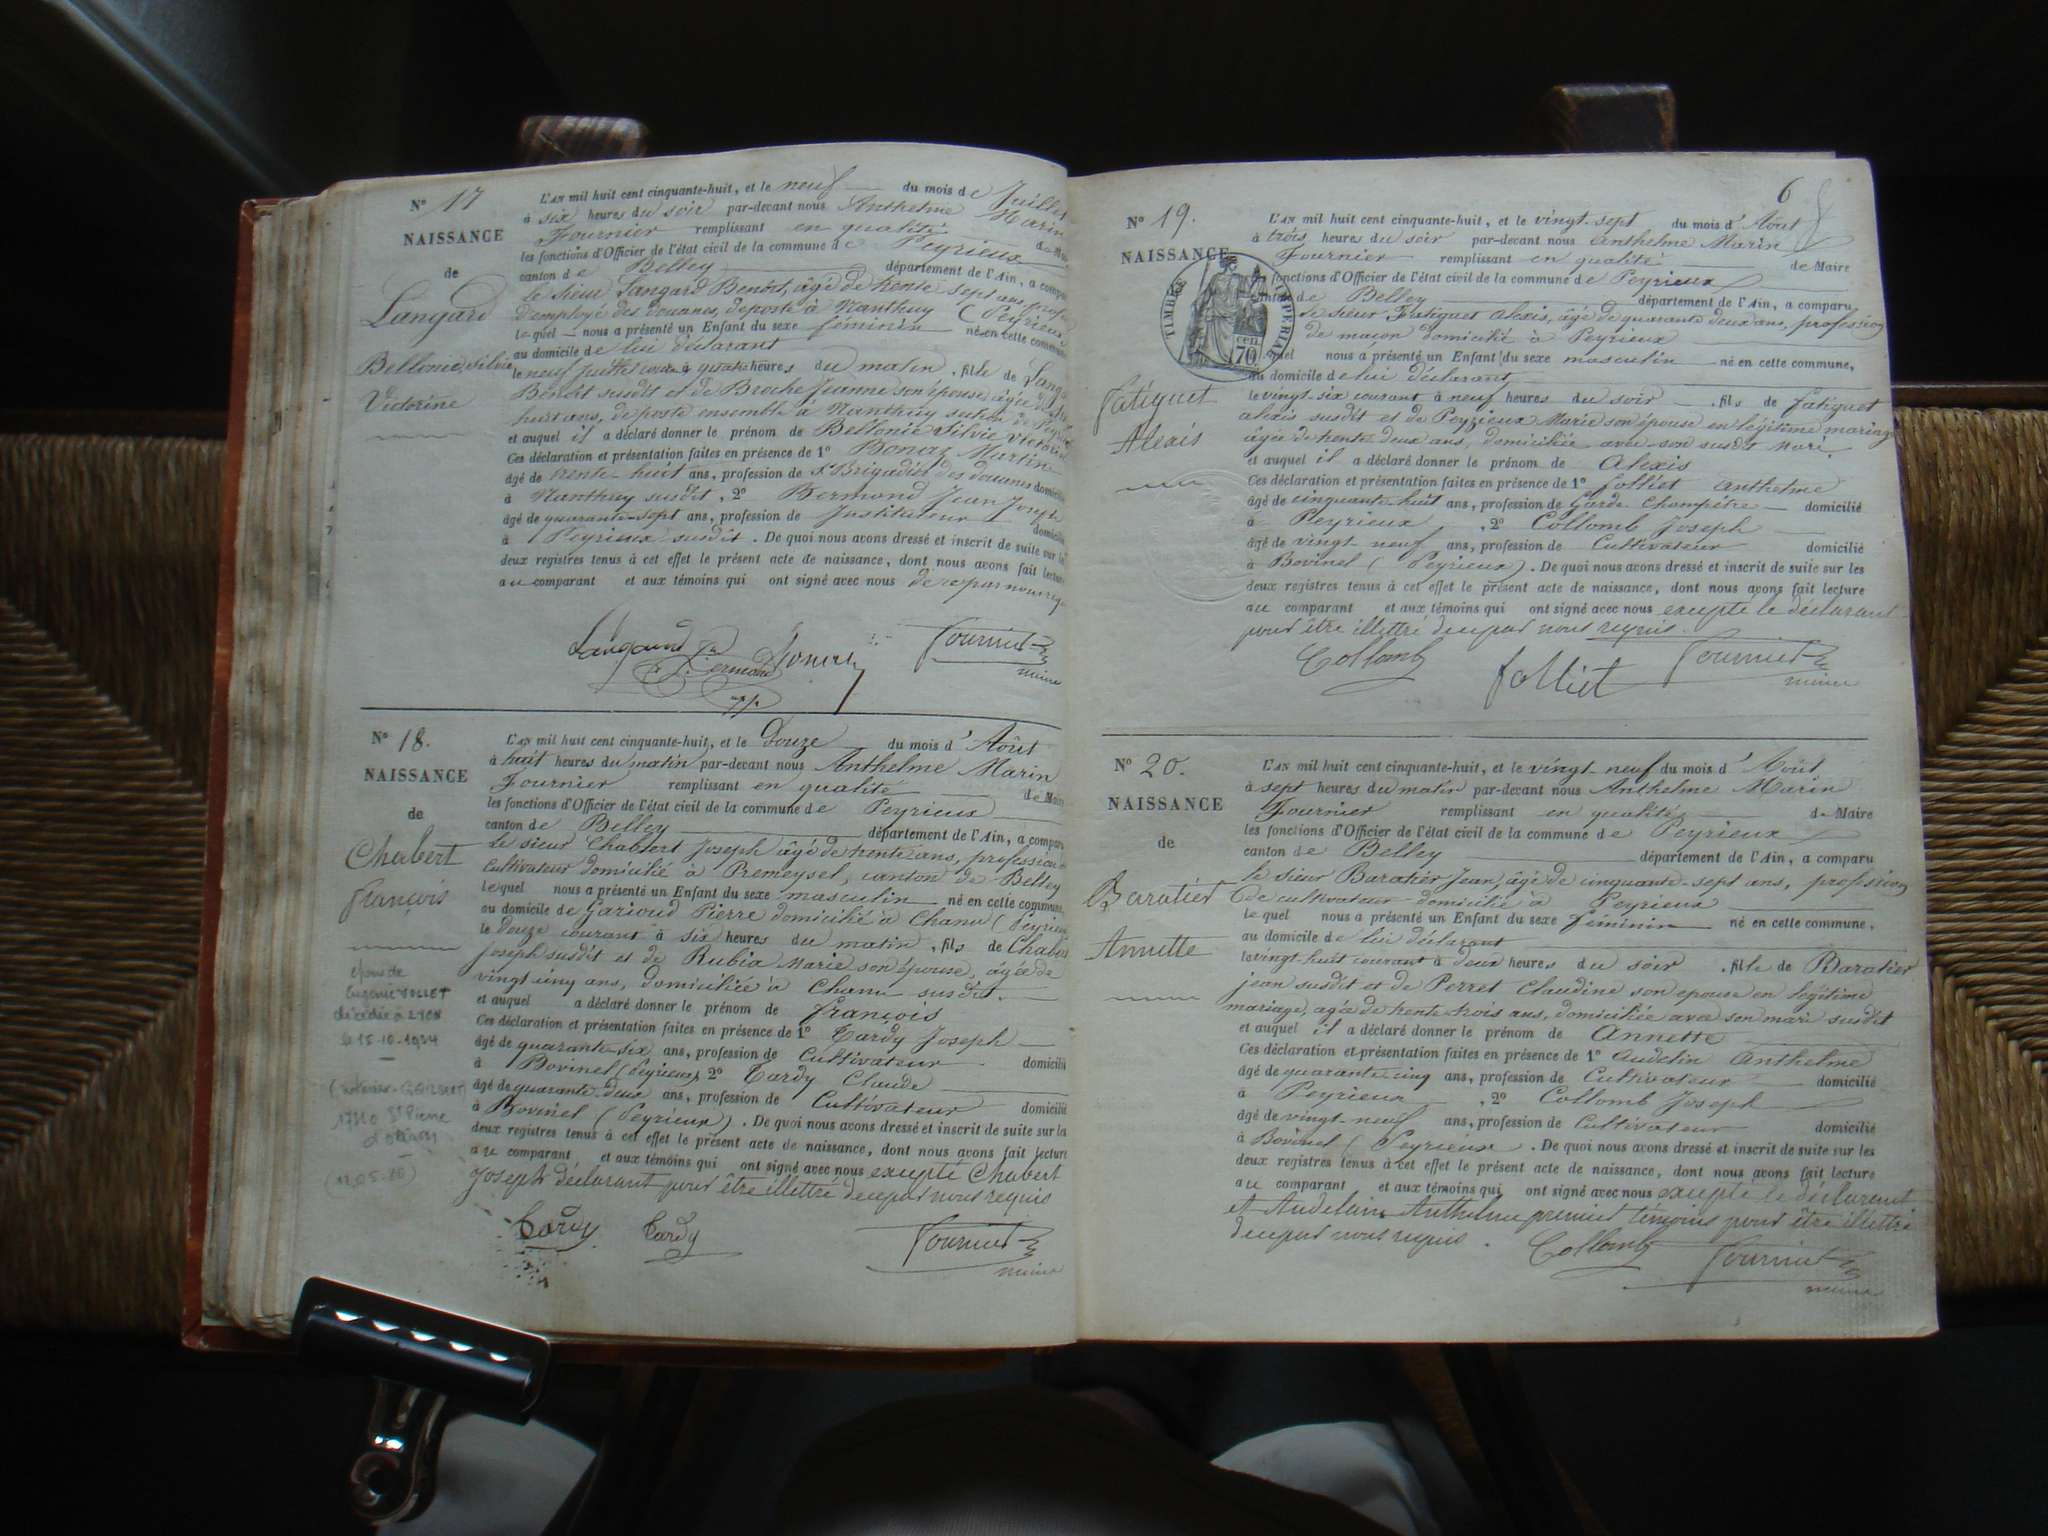 N° 17
NAISSANCE
de
Langard
Bellonie Silvie
Victorine
L'AN mil huit cent cinquante-huit, et le neuf du mois de Juillet
à six heures du soir par-devant nous Anthelme Marin
Fournier remplissant en qualité de
les fonctions d'Officier de l'état civil de la commune de Peyrieux
canton de Belley département de l'Ain, a
le sieur Langard Benoît, âgé de trente sept ans
d'employé des douanes, de poste à Nanthuy (Peyrieux
lequel nous a présenté un Enfant du sexe féminin né en cette commune
au domicile de lui déclarant
le neuf juillet à quatre heures du matin, fille de
Benoît susdit et de Broche Jeanne son épouse âgée de
huit ans, de poste ensemble à Nanthuy
et auquel il a déclaré donner le prénom de Bellonie Silvie
Ces déclaration et présentation faites en présence de 1° Bonaz Martin
âgé de trente-huit ans, profession de Brigadier des douanes
à Nanthuy susdit, 2° Bermond Jean Joseph
âgé de quarante-sept ans, profession de Instituteur
à Peyrieux susdit. De quoi nous avons dressé et inscrit de suite sur les
deux registres tenus à cet effet le présent acte de naissance, dont nous avons fait lecture
au comparant et aux témoins qui ont signé avec nous de ce par nous
Langard Bonaz Fournier
Bermond maire
N° 18.
NAISSANCE
de
Chabert
françois
époux de
Eugénie VOLLET
décédée à LYON
le 15-10-1924
S^t Pierre
L'AN mil huit cent cinquante-huit, et le Douze du mois d'Août
à huit heures du matin par-devant nous Anthelme Marin
Fournier remplissant en qualité de Maire
les fonctions d'Officier de l'état civil de la commune de Peyrieux
canton de Belley département de l'Ain, a comparu
le sieur Chabert Joseph âgé de trente ans, profession
Cultivateur domicilié à Premeysel, canton de Belley
lequel nous a présenté un Enfant du sexe masculin né en cette commune,
au domicile de Garioud Pierre domicilié à Chanu (Peyrieux
le douze courant à six heures du matin, fils de
Joseph susdit et de Rubia Marie son épouse, âgée de
vingt cinq ans, domiciliée à Chanu susdit.
et auquel a déclaré donner le prénom de françois
Ces déclaration et présentation faites en présence de 1° Tardy Joseph
âgé de quarante-six ans, profession de Cultivateur domicilié
à Bovinel (Peyrieux) 2° Tardy Claude
âgé de quarante deux ans, profession de Cultivateur domicilié
à Bovinel (Peyrieux). De quoi nous avons dressé et inscrit de suite sur les
deux registres tenus à cet effet le présent acte de naissance, dont nous avons fait lecture
au comparant et aux témoins qui ont signé avec nous excepté Chabert
Joseph déclarant pour être illettré de ce par nous requis
Tardy Tardy Fournier
maire
6
N° 19.
NAISSANCE
TIMBRE IMPERIAL
70 cen.
fatiguet
Alexis
L'AN mil huit cent cinquante-huit, et le vingt-sept du mois d'Août
à trois heures du soir par-devant nous Anthelme Marin
Fournier remplissant en qualité de Maire
les fonctions d'Officier de l'état civil de la commune de Peyrieux
canton de Belley département de l'Ain, a comparu
le sieur fatiguet Alexis, âgé de quarante deux ans, profession
de maçon domicilié à Peyrieux
lequel nous a présenté un Enfant du sexe masculin né en cette commune,
au domicile de lui déclarant
le vingt-six courant à neuf heures du soir, fils de fatiguet
alexis susdit et de Peyrieux Marie son épouse en légitime mariage
âgée de trente deux ans, domiciliée avec son susdit mari
et auquel il a déclaré donner le prénom de Alexis
Ces déclaration et présentation faites en présence de 1° folliet anthelme
âgé de cinquante-huit ans, profession de Garde Champêtre domicilié
à Peyrieux, 2° Collomb Joseph
âgé de vingt neuf ans, profession de Cultivateur domicilié
à Bovinel (Peyrieux). De quoi nous avons dressé et inscrit de suite sur les
deux registres tenus à cet effet le présent acte de naissance, dont nous avons fait lecture
au comparant et aux témoins qui ont signé avec nous excepté le déclarant
pour être illettré de ce par nous requis.
Collomb folliet Fournier
maire
N° 20.
NAISSANCE
de
Baratier
Annette
L'AN mil huit cent cinquante-huit, et le vingt-neuf du mois d'Août
à sept heures du matin par-devant nous Anthelme Marin
Fournier remplissant en qualité de Maire
les fonctions d'Officier de l'état civil de la commune de Peyrieux
canton de Belley département de l'Ain, a comparu
le sieur Baratier Jean, âgé de cinquante-sept ans, profession
de cultivateur domicilié à Peyrieux
lequel nous a présenté un Enfant du sexe féminin né en cette commune,
au domicile de lui déclarant
le vingt-huit courant à deux heures du soir, fille de Baratier
jean susdit et de Perret Claudine son épouse en légitime
mariage, âgée de trente trois ans, domiciliée avec son mari susdit
et auquel il a déclaré donner le prénom de Annette
Ces déclaration et présentation faites en présence de 1° Audelin Anthelme
âgé de quarante cinq ans, profession de Cultivateur domicilié
à Peyrieux, 2° Collomb Joseph
âgé de vingt-neuf ans, profession de Cultivateur domicilié
à Bovinel (Peyrieux. De quoi nous avons dressé et inscrit de suite sur les
deux registres tenus à cet effet le présent acte de naissance, dont nous avons fait lecture
au comparant et aux témoins qui ont signé avec nous excepté le déclarant
et Audelain Anthelme premier témoins pour être illettré
de ce par nous requis. Collomb Fournier
maire